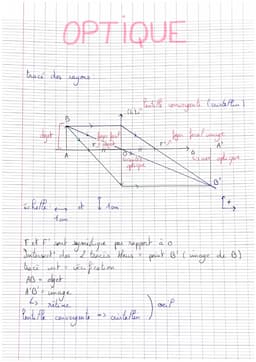 OPTIQUE
tracé des rayons
lentille convergente (cristallin)
B
objet
foyer objet
foyer image
F
O
F'
A'
A
centre optique
axe optique
B'
échelle et 1cm
1cm
F et F' sont symétrique par rapport à O
Intersect° des 2 tracés bleus = point B' (image de B)
tracé vert = vérification
AB = objet
A'B' = image
↳ rétine
lentille convergente => cristallin